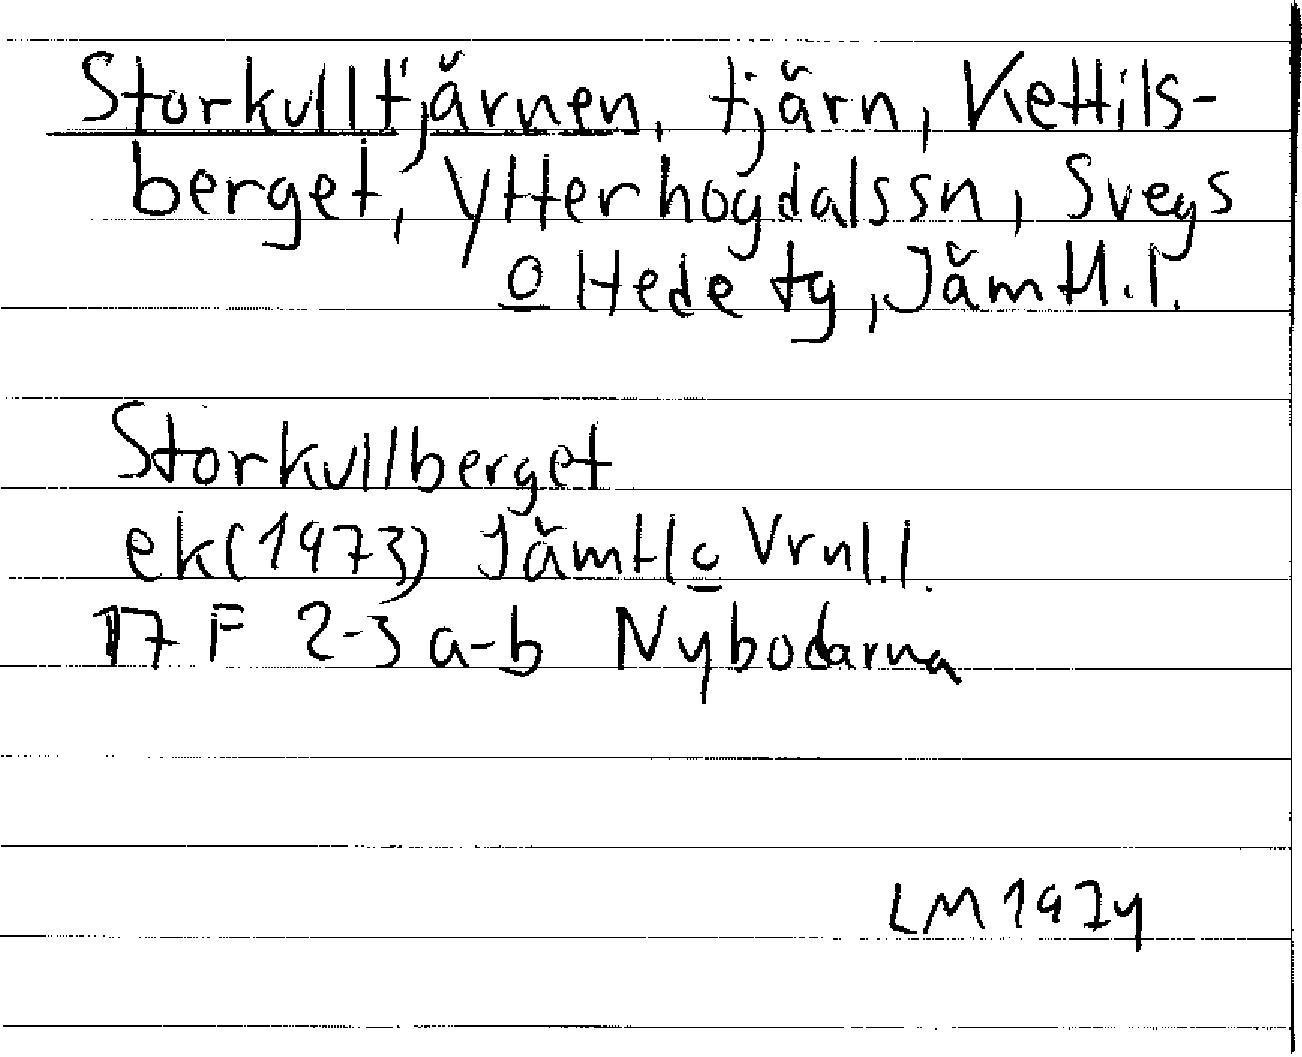 Storkulltjärnen, tjärn, Kettils-
berget, Ytterhogdalssn, Svegs
o Hede tg, Jämtl.l.
Storkullberget
ek(1973) Jämtl o Vrnl.l.
17 F 2-3 a-b Nybodarna
LM 1974